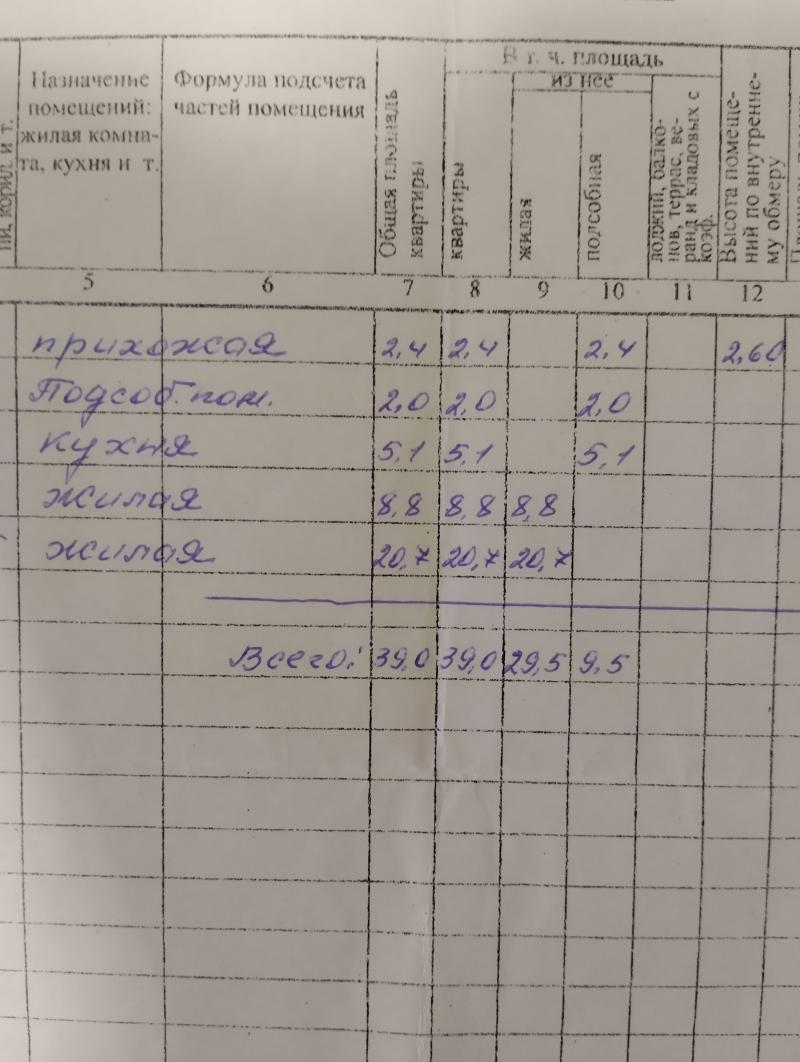 В т. ч. площадь
из нее
Назначение
помещений:
жилая комна-
та, кухня и т.
Формула подсчета
частей помещения
Общая площадь
квартиры
квартиры
жилая
подсобная
лоджий, балко-
нов, террас, ве-
ранд и кладовых с
коэф.
Высота помеще-
ний по внутренне-
му обмеру
5 6 7 8 9 10 11 12
прихожая 2,4 2,4 2,4 2,60
Подсоб. пом. 2,0 2,0 2,0
кухня 5,1 5,1 5,1
жилая 8,8 8,8 8,8
жилая 20,7 20,7 20,7
Всего: 39,0 39,0 29,5 9,5